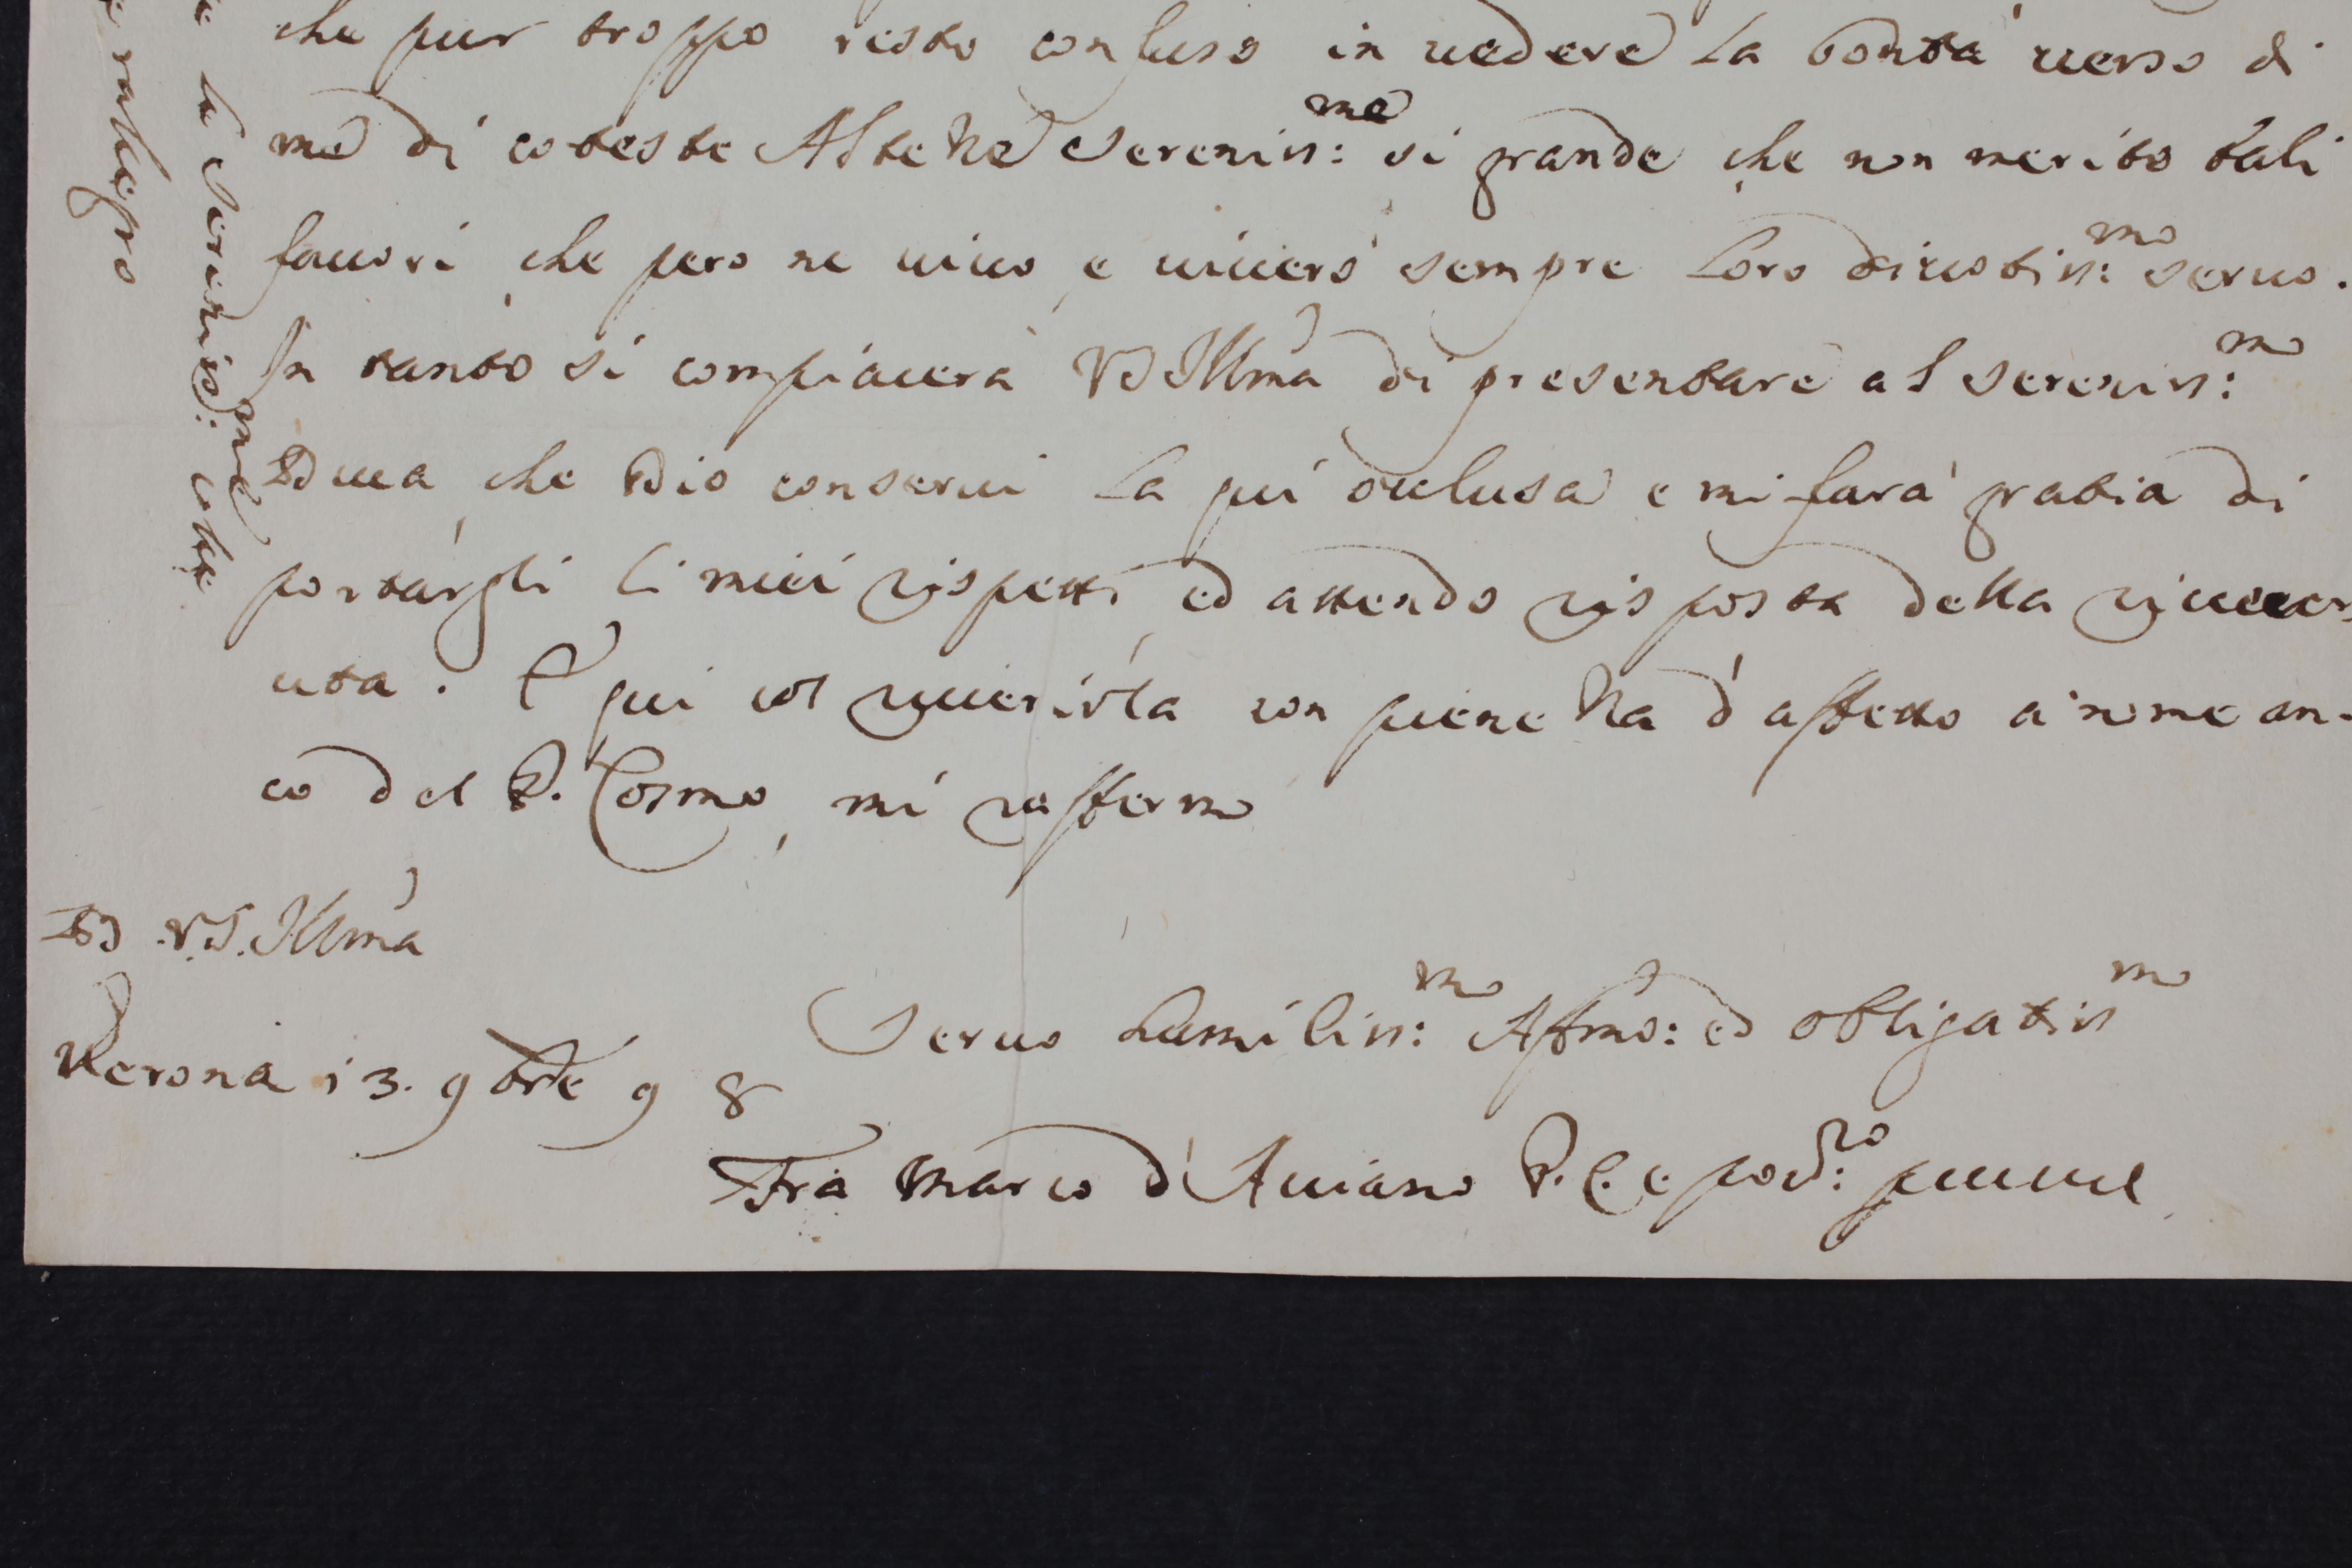 che pur troppo resto confuso in uedere la bontà uerso di
me di coteste Altezze Sereniss:me si grande che non merito tali
fauori, che pero ne uiuo, e uiuerò sempre loro diuotiss:mo seruo.
In tanto si compiacerà VS Illma di presentare al Sereniss:mo
Duca, che Dio conserui la qui occlusa e mi farà gratia di
portargli li miei rispetti, ed attendo risposta della riceu
uta. E qui col riuerirla con pienezza d'affetto a nome an-
co del P. Cosmo, mi raffermo
Di V.S. Illma
Verona 13. 9bre 98
Seruo humiliss:mo Affmo: ed obligatissmo
Fra Marco d'Auiano P. C. e
e la Sereniss:me
rallegro